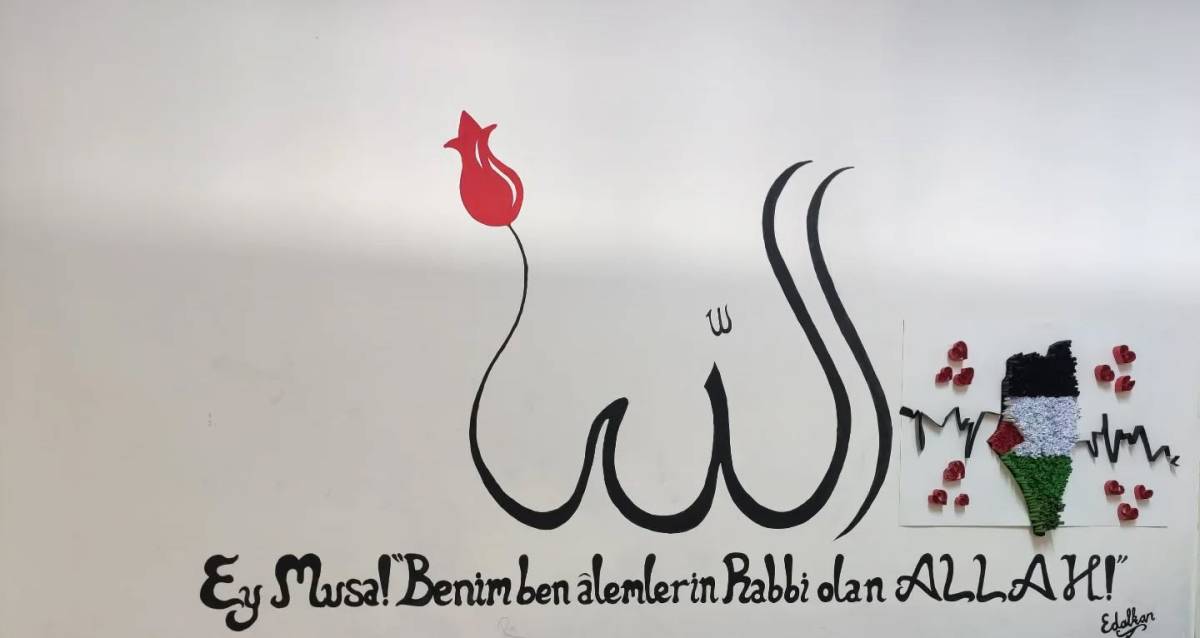 الله
Ey Musa! "Benim ben âlemlerin Rabbi olan ALLAH!"
Edalkan